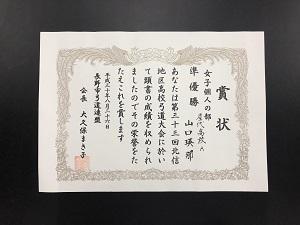 賞状
女子個人の部
準優勝
屋代高校A
山口瑛那
あなたは第三十三回北信
地区高校弓道大会に於い
て頭書の成績を収められ
ましたのでその栄誉をた
たえこれを賞します
平成三十年八月二十六日
長野市弓道連盟
会長 大久保まき子